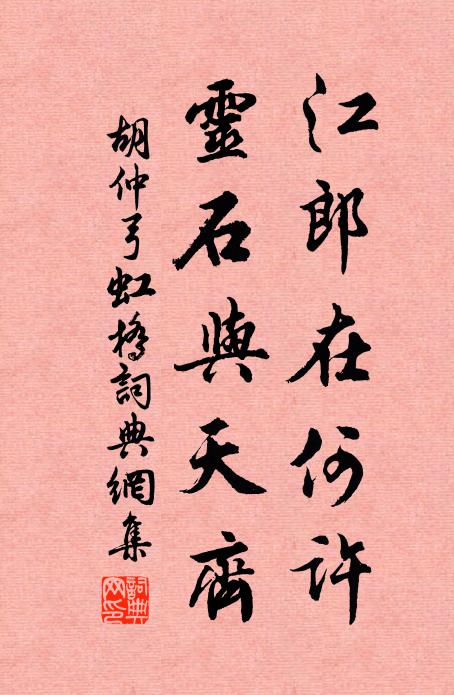 江郎在何許
靈石與天齊
胡仲弓虹橋詞典網集
詞典網印